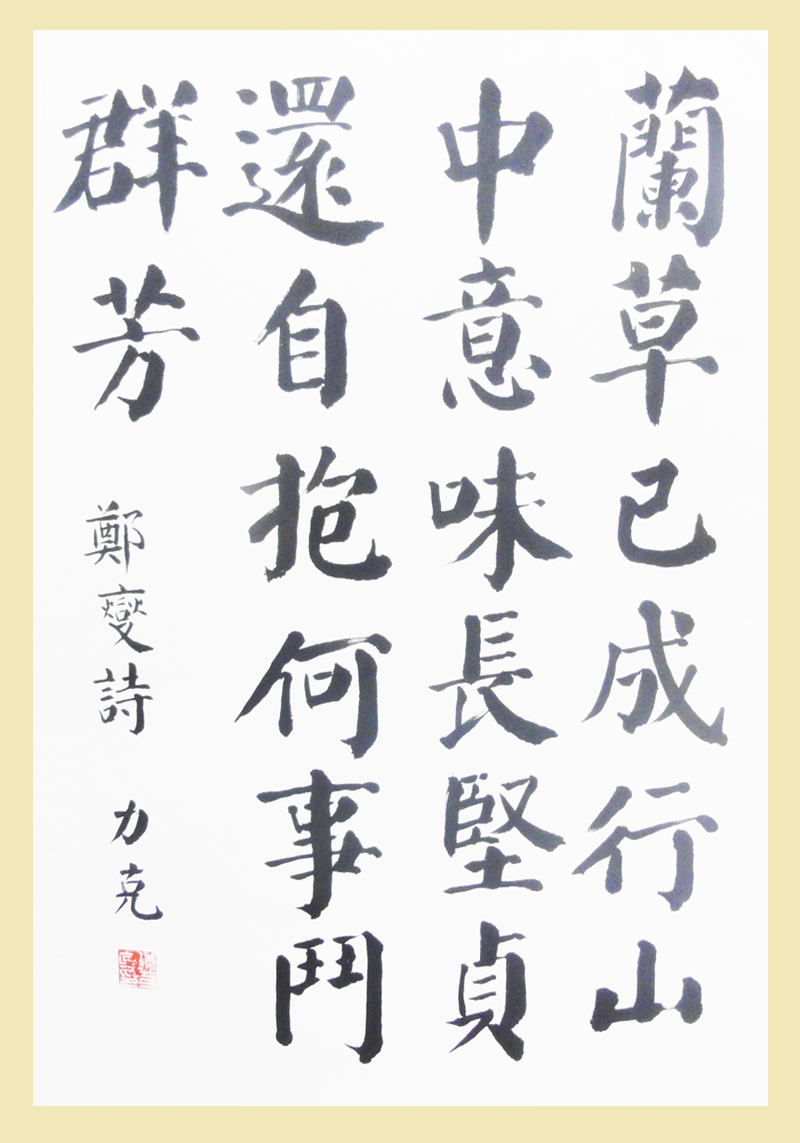 蘭草已成行山
中意味長堅貞
還自抱何事鬥
群芳
鄭燮詩 力克